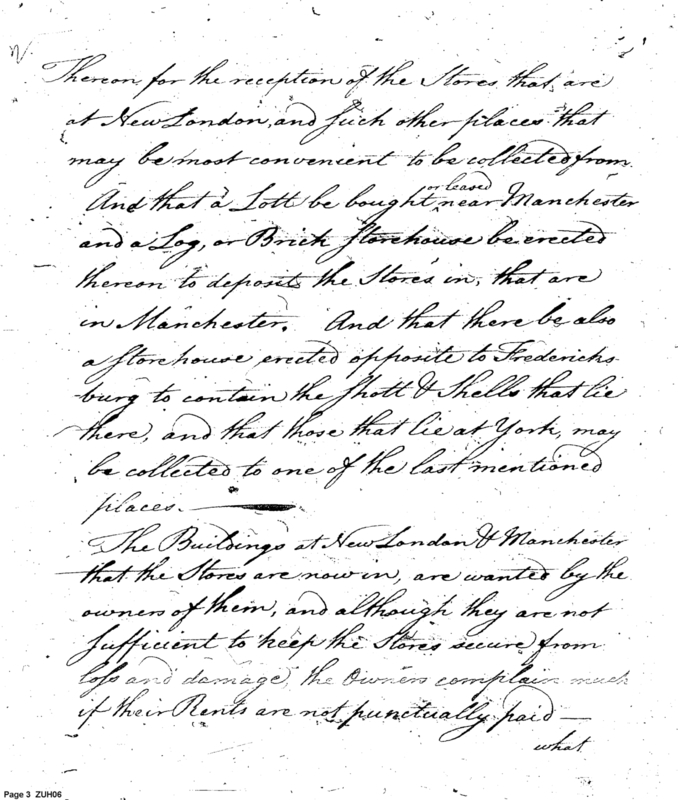 Thereon, for the reception of the Stores that are
at New London, and such other places that
may be most convenient to be collected from.
And that a Lott be bought or leased near Manchester
and a Log, or Brick Storehouse be erected
thereon to deposit the Stores in, that are
in Manchester. And that there be also
a Storehouse erected opposite to Fredericks-
burg to contain the Shott & Shells that lie
there, and that those that lie at York, may
be collected to one of the last mentioned
places.
The Buildings at New London & Manchester
that the Stores are now in, are wanted by the
owners of them, and although they are not
sufficient to keep the Stores secure from
loss and damage, the Owners complain much
if their Rents are not punctually paid —
what
Page 3 ZUH06